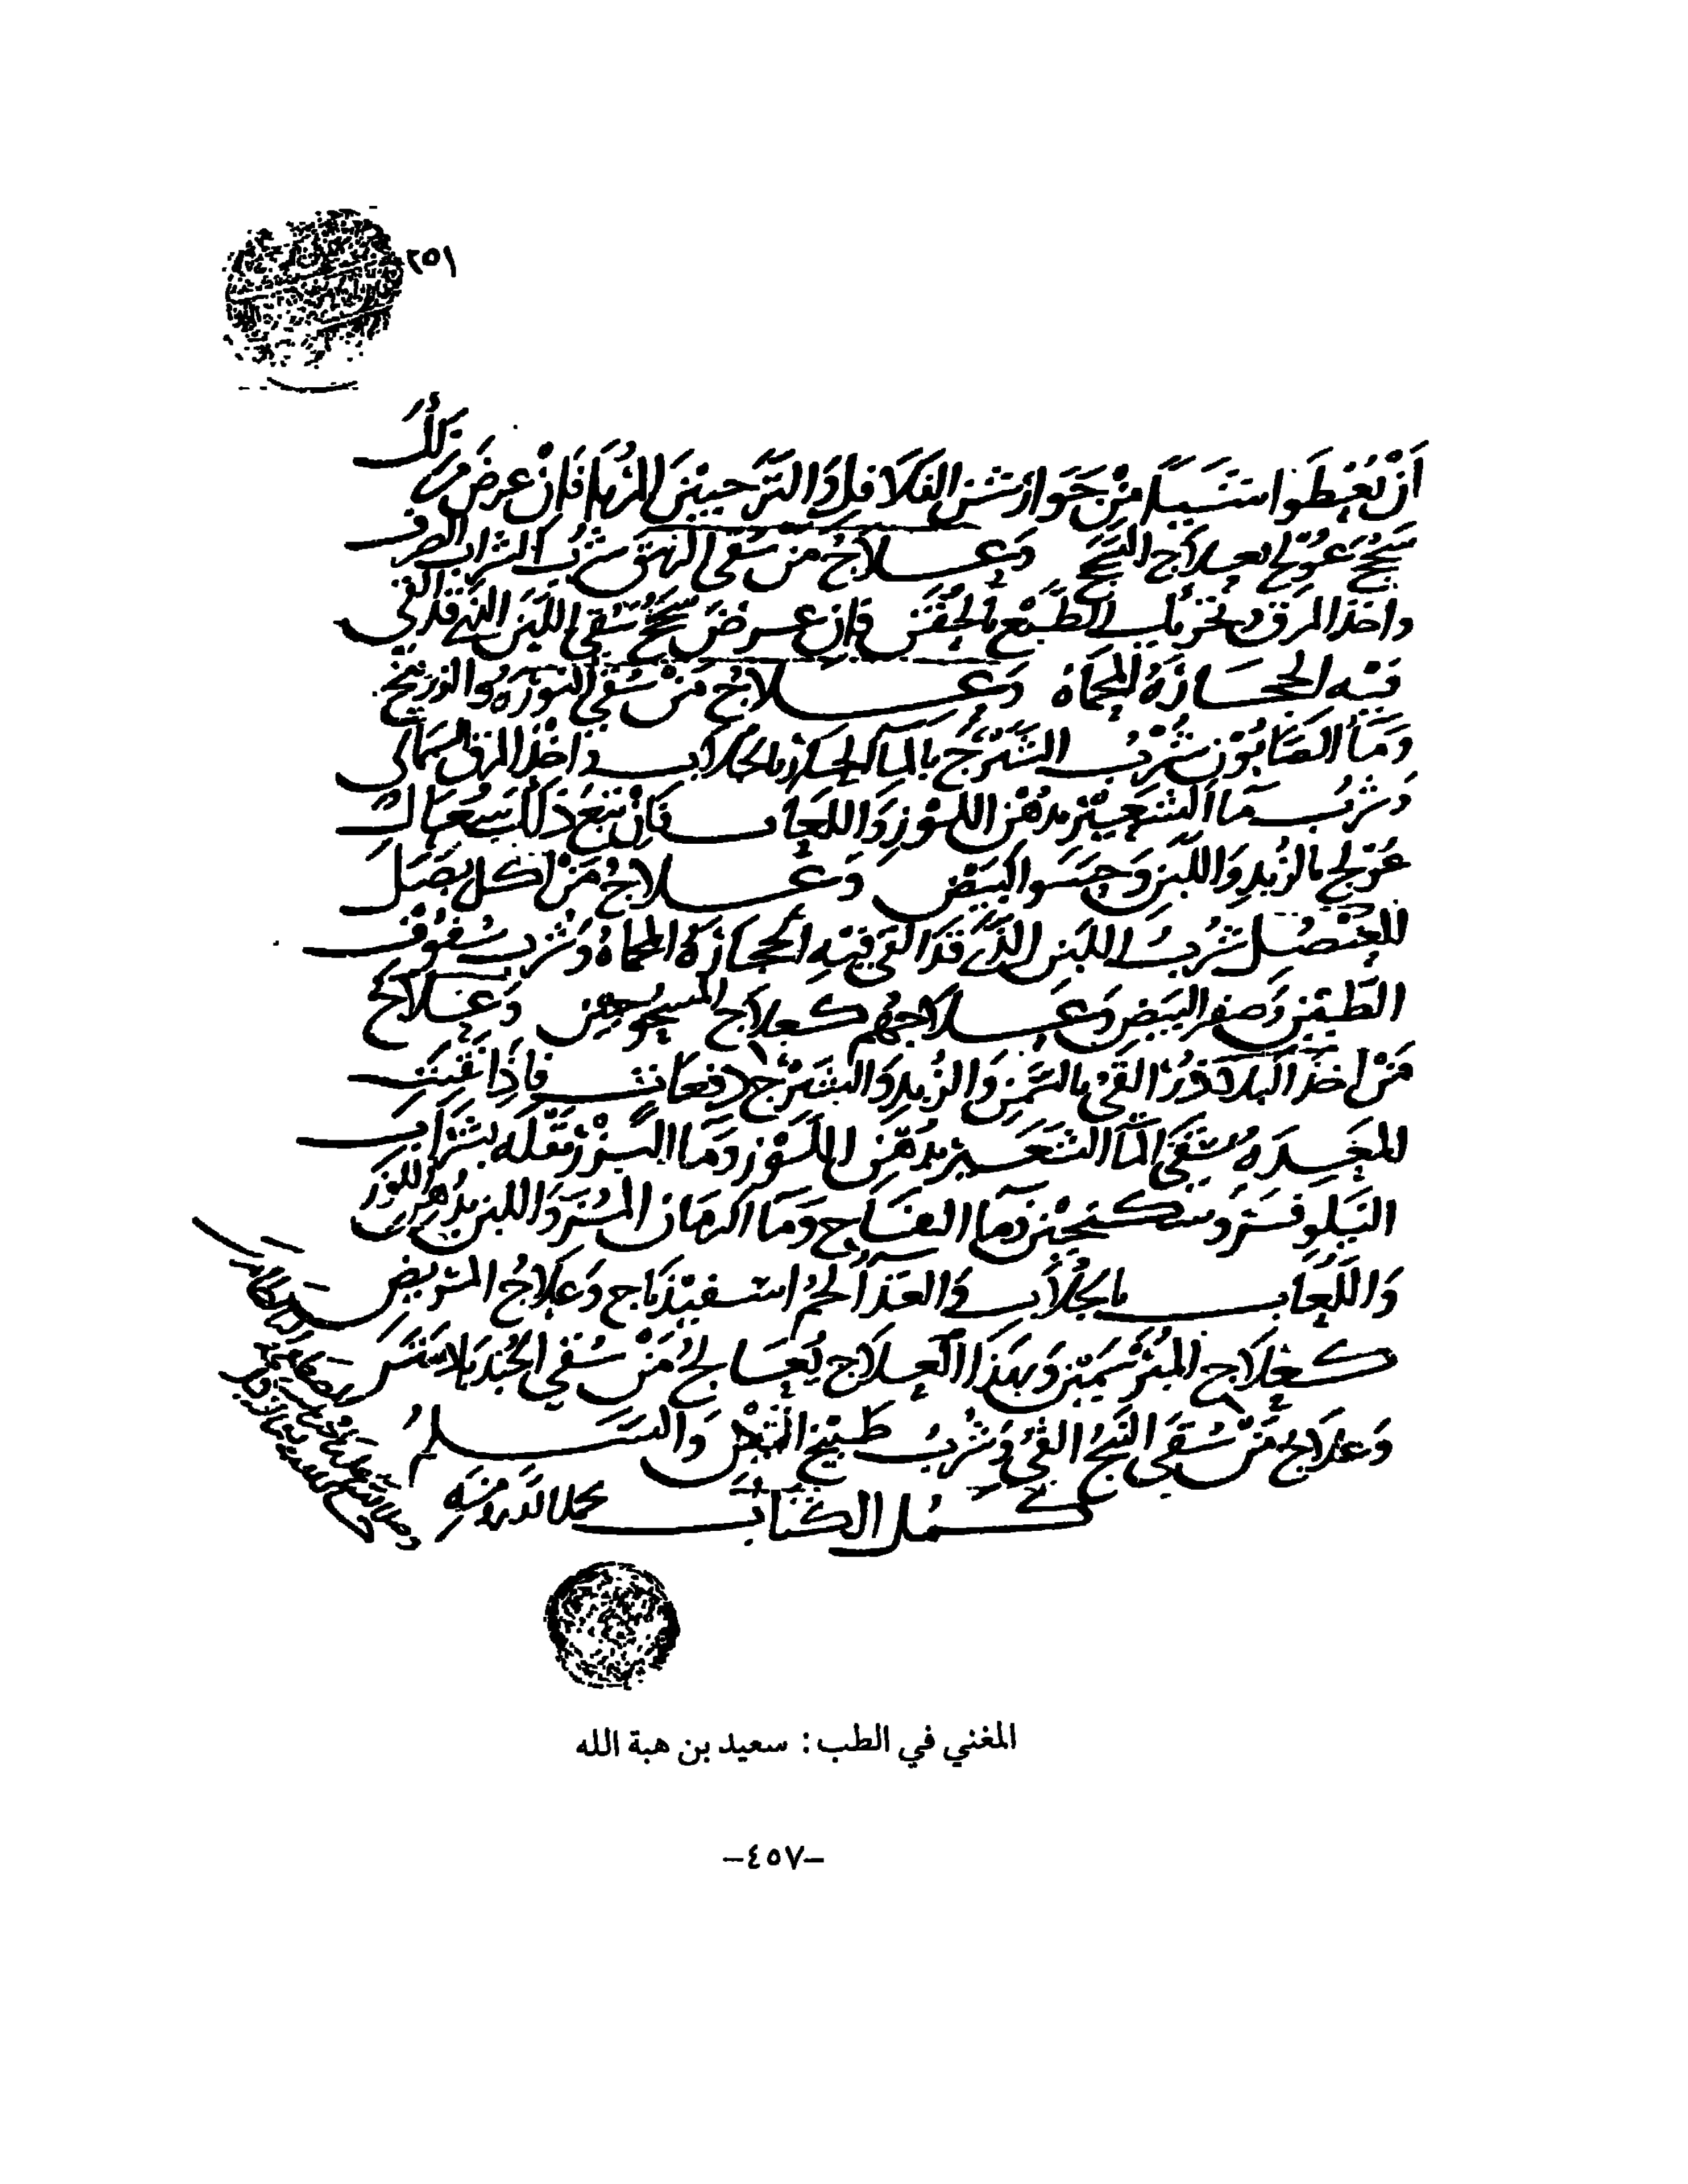 ٢٥١
أن يعطوا شيئا من جوارشن الفلافلي والترجبين المربها فان عرض من ذلك
سحج عولج بعلاج السحج وعلاج من سقى البهق شرب الشراب الصرف
واخذ المرق وتحريك الطبع بالحقن فإن عرض سحج سقي اللبن الذي قد القي
فيه الحجارة المحماة وعلاج من سقي النورة والزرنيخ
وما الصابون شرب الشيرج بالما الحار والجلاب واخذ المرق السماني
وشرب ما الشعير بدهن اللوز واللعاب فان تبع ذلك سعال
عولج بالزبد واللبن وحسو البيض وعلاج من اكل بصل
العنصل شرب اللبن الذي قد القي فيه الحجارة المحماة وشرب سفوف
الطين وصفر البيض وعلاجهم كعلاج المسحوجين وعلاج
من اخذ البلادر القي بالسمن والزبد والشيرج دفعات فاذا نقيت
المعده سقي ما الشعير بدهن اللوز وما البزر بقله بشراب
النيلوفر وسكنجبين وما التفاح وما الرمان المز واللبن بدهن اللوز
واللعاب بالجلاب والغذا لحم اسفيذباج وعلاج
كعلاج وبهذا العلاج يعالج من سقي الجندبادستر
وعلاج من سقي البنج القي وشرب طبيخ التين والسلم
كمل الكتاب بحمد الله ومنه
المغني في الطب : سعيد بن هبة الله
-٤٥٧-